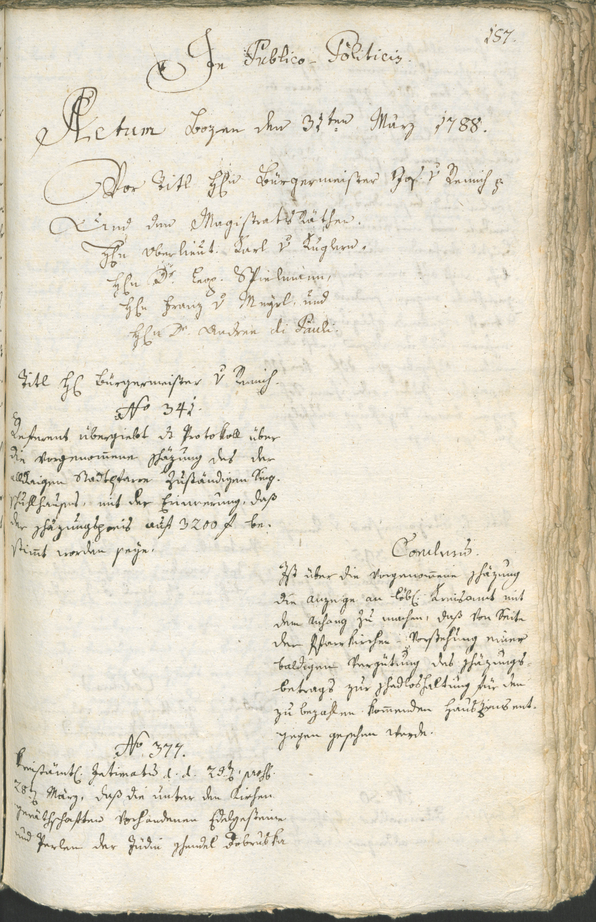 157.
In Publico-Politicis.
Actum Bozen den 31ten März 1788.
Vor Titl Hℓn Bürgermeister Jos: v Remich ꝛ
Und den Magistrats Räthen.
Hℓn Oberlieut. Karl v Kuglern.
Hℓn Dr. Leop. Spielmann,
Hℓn Franz v Mayrl, und
Hℓn Dr. Andree di Pauli.
Titl Hℓ Bürgermeister v Remich
No 341.
Referent übergiebt das Protokoll über
die vorgenommene Schäzung des der
alldaigen Stadtpfarre zuständigen Sing-
schullhauses mit der Erinnerung, daß
der Schäzungspreis auf 3200 f be-
stimmt worden seye.
Conclusum.
Ist über die vorgenommene Schäzung
die Anzeige an löbl: Kreisamt mit
dem Anhang zu machen, daß von Seite
der Pfarrkirchen-Vorstehung einer
baldigen Vergütung des Schäzungs-
betrags zur Schadloshaltung für den
zu bezahlen kommenden Hauszins ent-
gegen gesehen werde.
No. 377.
Kreisämtl: Intimatum d. d. 23t, präs.
28t März, daß die unter den Kirchen
geräthschaften vorhandenen Edelgesteine
und Perlen der Jüdin Schendel Dobruska